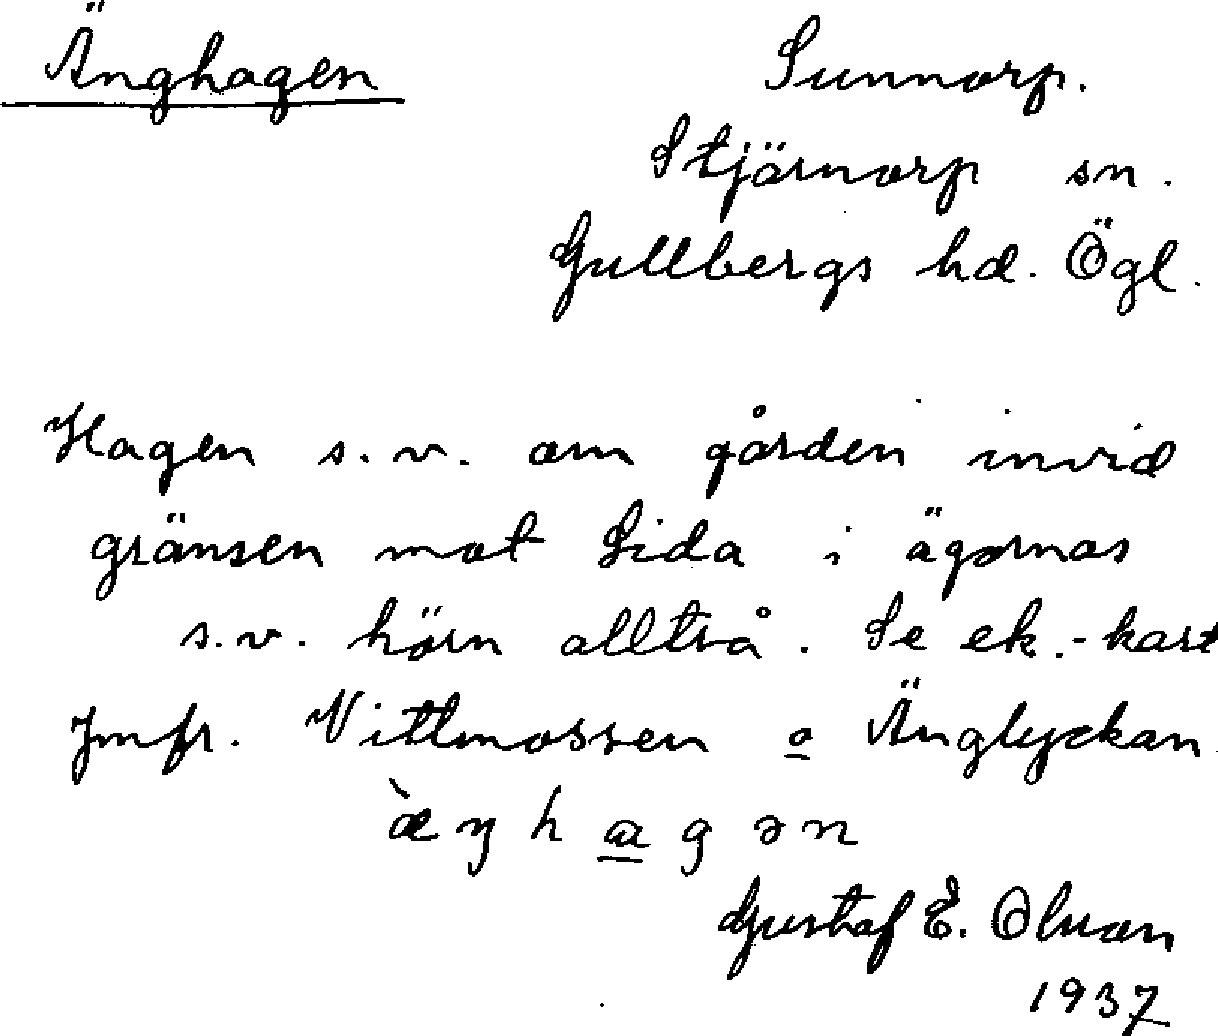 Änghagen
Sunnorp.
Stjärnorp sn.
Gullbergs hd. Ögl.
Hagen s.v. om gården invid
gränsen mot Lida i ägornas
s.v. hörn alltså. Se ek.-kart
Jmfr. Vittmossen o Änglyckan.
æ̀ŋhɑgən
Gustaf E. Olsson
1937